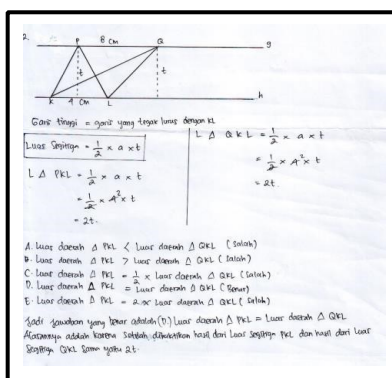 2.
P 8 cm Q g
t t
K 4 cm L h
Garis tinggi = garis yang tegak lurus dengan KL
Luas Segitiga = 1/2 x a x t
L Δ PKL = 1/2 x a x t
= 1/2 x 4² x t
= 2t.
L Δ QKL = 1/2 x a x t
= 1/2 x 4² x t
= 2t.
A. Luas daerah Δ PKL < Luas daerah Δ QKL (Salah)
B. Luas daerah Δ PKL > Luas daerah Δ QKL (Salah)
C. Luas daerah Δ PKL = 1/2 x Luas daerah Δ QKL (Salah)
D. Luas daerah Δ PKL = Luas daerah Δ QKL (Benar)
E. Luas daerah Δ PKL = 2 x Luas daerah Δ QKL (Salah)
Jadi jawaban yang benar adalah (D.) Luas daerah Δ PKL = Luas daerah Δ QKL
Alasannya adalah karena setelah dibuktikan hasil dari Luas segitiga PKL dan hasil dari Luas
Segitiga QKL sama yaitu 2t.